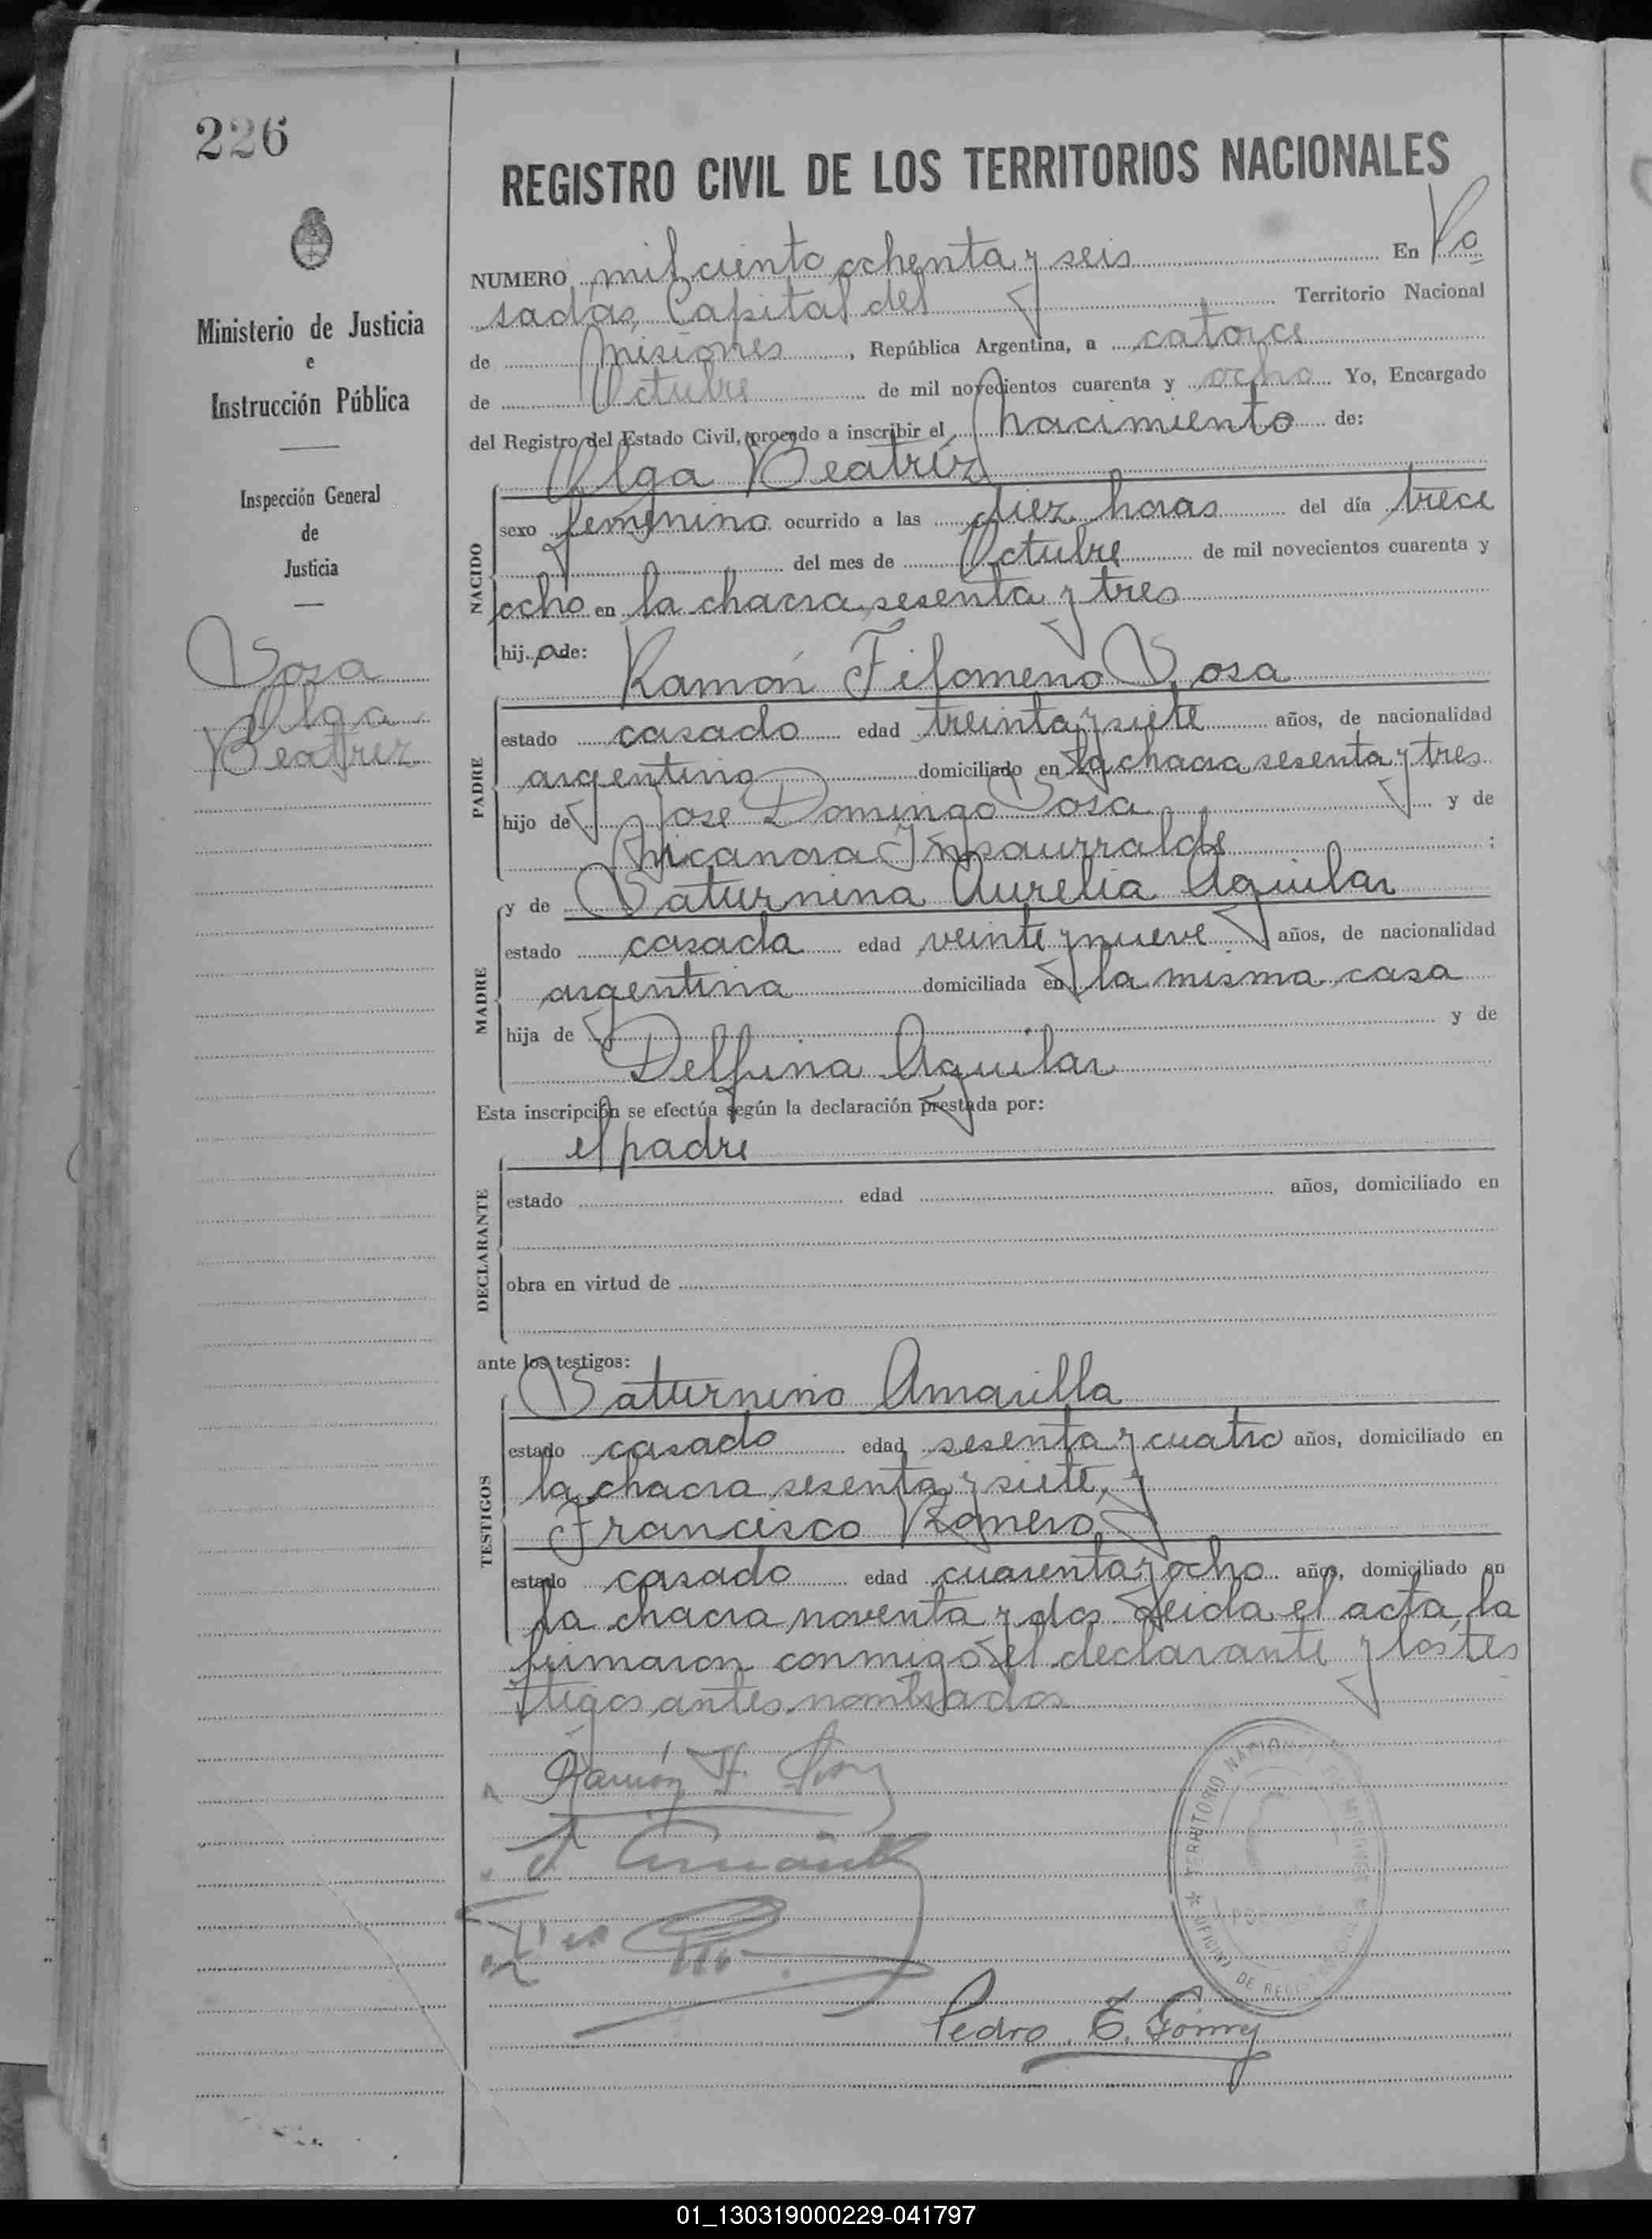 226
REGISTRO CIVIL DE LOS TERRITORIOS NACIONALES
Ministerio de Justicia
e
Instrucción Pública
Inspección General
de
Justicia
Sosa
Olga
Beatriz
NUMERO mil ciento ochenta y seis En Po
sadas, Capital del Territorio Nacional
de Misiones, República Argentina, a catorce
de Octubre de mil novecientos cuarenta y ocho Yo, Encargado
del Registro del Estado Civil, procedo a inscribir el nacimiento de:
Olga Beatríz
NACIDO
sexo femenino ocurrido a las diez horas del día trece
del mes de Octubre de mil novecientos cuarenta y
ocho en la chacra sesenta y tres
hij a de:
Ramón Filomeno Sosa
PADRE
estado casado edad treinta y siete años, de nacionalidad
argentino domiciliado en la chacra sesenta y tres
hijo de Jose Domingo Sosa y de
Nicanora Insaurralde ;
MADRE
y de Saturnina Aurelia Aguilar
estado casada edad veinte y nueve años, de nacionalidad
argentina domiciliada en la misma casa
hija de y de
Delfina Aguilar
Esta inscripción se efectúa según la declaración prestada por:
el padre
DECLARANTE
estado edad años, domiciliado en
obra en virtud de
ante los testigos:
Saturnino Amarilla
TESTIGOS
estado casado edad sesenta y cuatro años, domiciliado en
la chacra sesenta y siete, y
Francisco Romero,
estado casado edad cuarenta y ocho años, domiciliado en
la chacra noventa y dos. Leida el acta, la
firmaron conmigo el declarante y los tes
tigos antes nombrados
Ramón F. Sosa
TERRITORIO NACIONAL DE MISIONES
OFICINA DE REGISTRO
Pedro E. Gómez
01_130319000229-041797